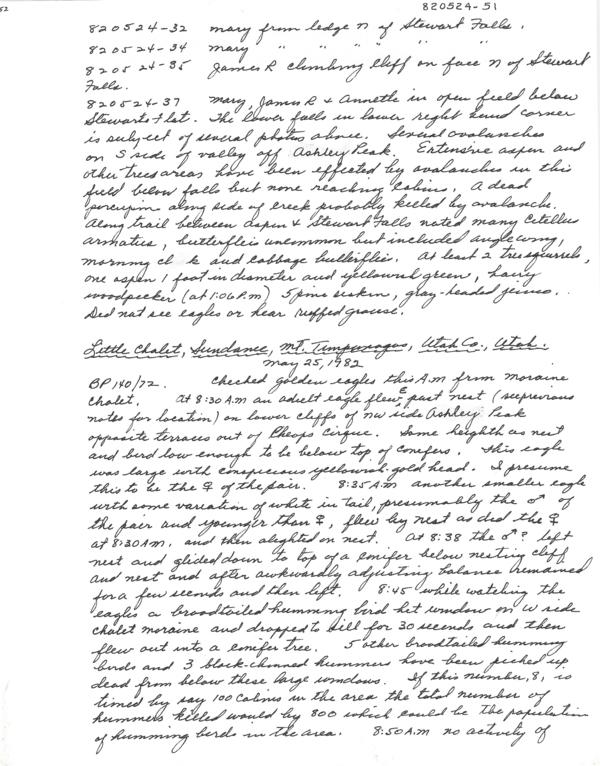 52
820524-51
820524-32 Mary from ledge N of Stewart Falls.
820524-34 Mary " " " " "
820524-35 James R climbing cliff on face N of Stewart
Falls.
820524-37 Mary, James R & Annette in open field below
Stewarts Flat. The lower falls in lower right hand corner
is subject of several photos above. Several avalanches
on S side of valley off Ashley Peak. Extensive aspen and
other trees areas have been effected by avalanches in this
field below falls but none reaching cabins. A dead
porcupine along side of creek probably killed by avalanche.
Along trail between Aspen & Stewart Falls noted many Citellus
armatus, butterflies uncommon but included anglewing,
morning cl k and cabbage butterflies. At least 2 tree squirrels,
one aspen 1 foot in diameter and yellowish green, hairy
woodpecker (at 1:06 P.M) 5 pine siskin, gray-headed junco.
Did not see eagles or hear ruffed grouse.
Little Chalet, Sundance, Mt. Timpanogos, Utah Co., Utah.
May 25, 1982
BP 140/72. Checked golden eagles this A.M from moraine
chalet. At 8:30 AM an adult eagle flew E past nest (see previous
notes for location) on lower cliffs of NW side Ashley Peak
opposite terraces out of Cheops Cirque. Same heighth as nest
and bird low enough to be below top of conifers. This eagle
was large with conspicuous yellowish-gold head. I presume
this to be the ♀ of the pair. 8:35 A.M another smaller eagle
with some variation of white in tail, presumably the ♂ of
the pair and younger than ♀, flew by nest as did the ♀
at 8:30 AM, and then alighted on nest. At 8:38 the ♂? left
nest and glided down to top of a conifer below nesting cliff
and nest and after awkwardly adjusting balance remained
for a few seconds and then left. 8:45 while watching the
eagles a broadtailed humming bird hit window on W side
chalet moraine and dropped to sill for 30 seconds and then
flew out into a conifer tree. 5 other broadtailed humming
birds and 3 black-chinned hummers have been picked up
dead from below these large windows. If this number, 8, is
timed by say 100 cabins in the area the total number of
hummers killed would by 800 which could be the population
of humming birds in the area. 8:50 A.M no activity of